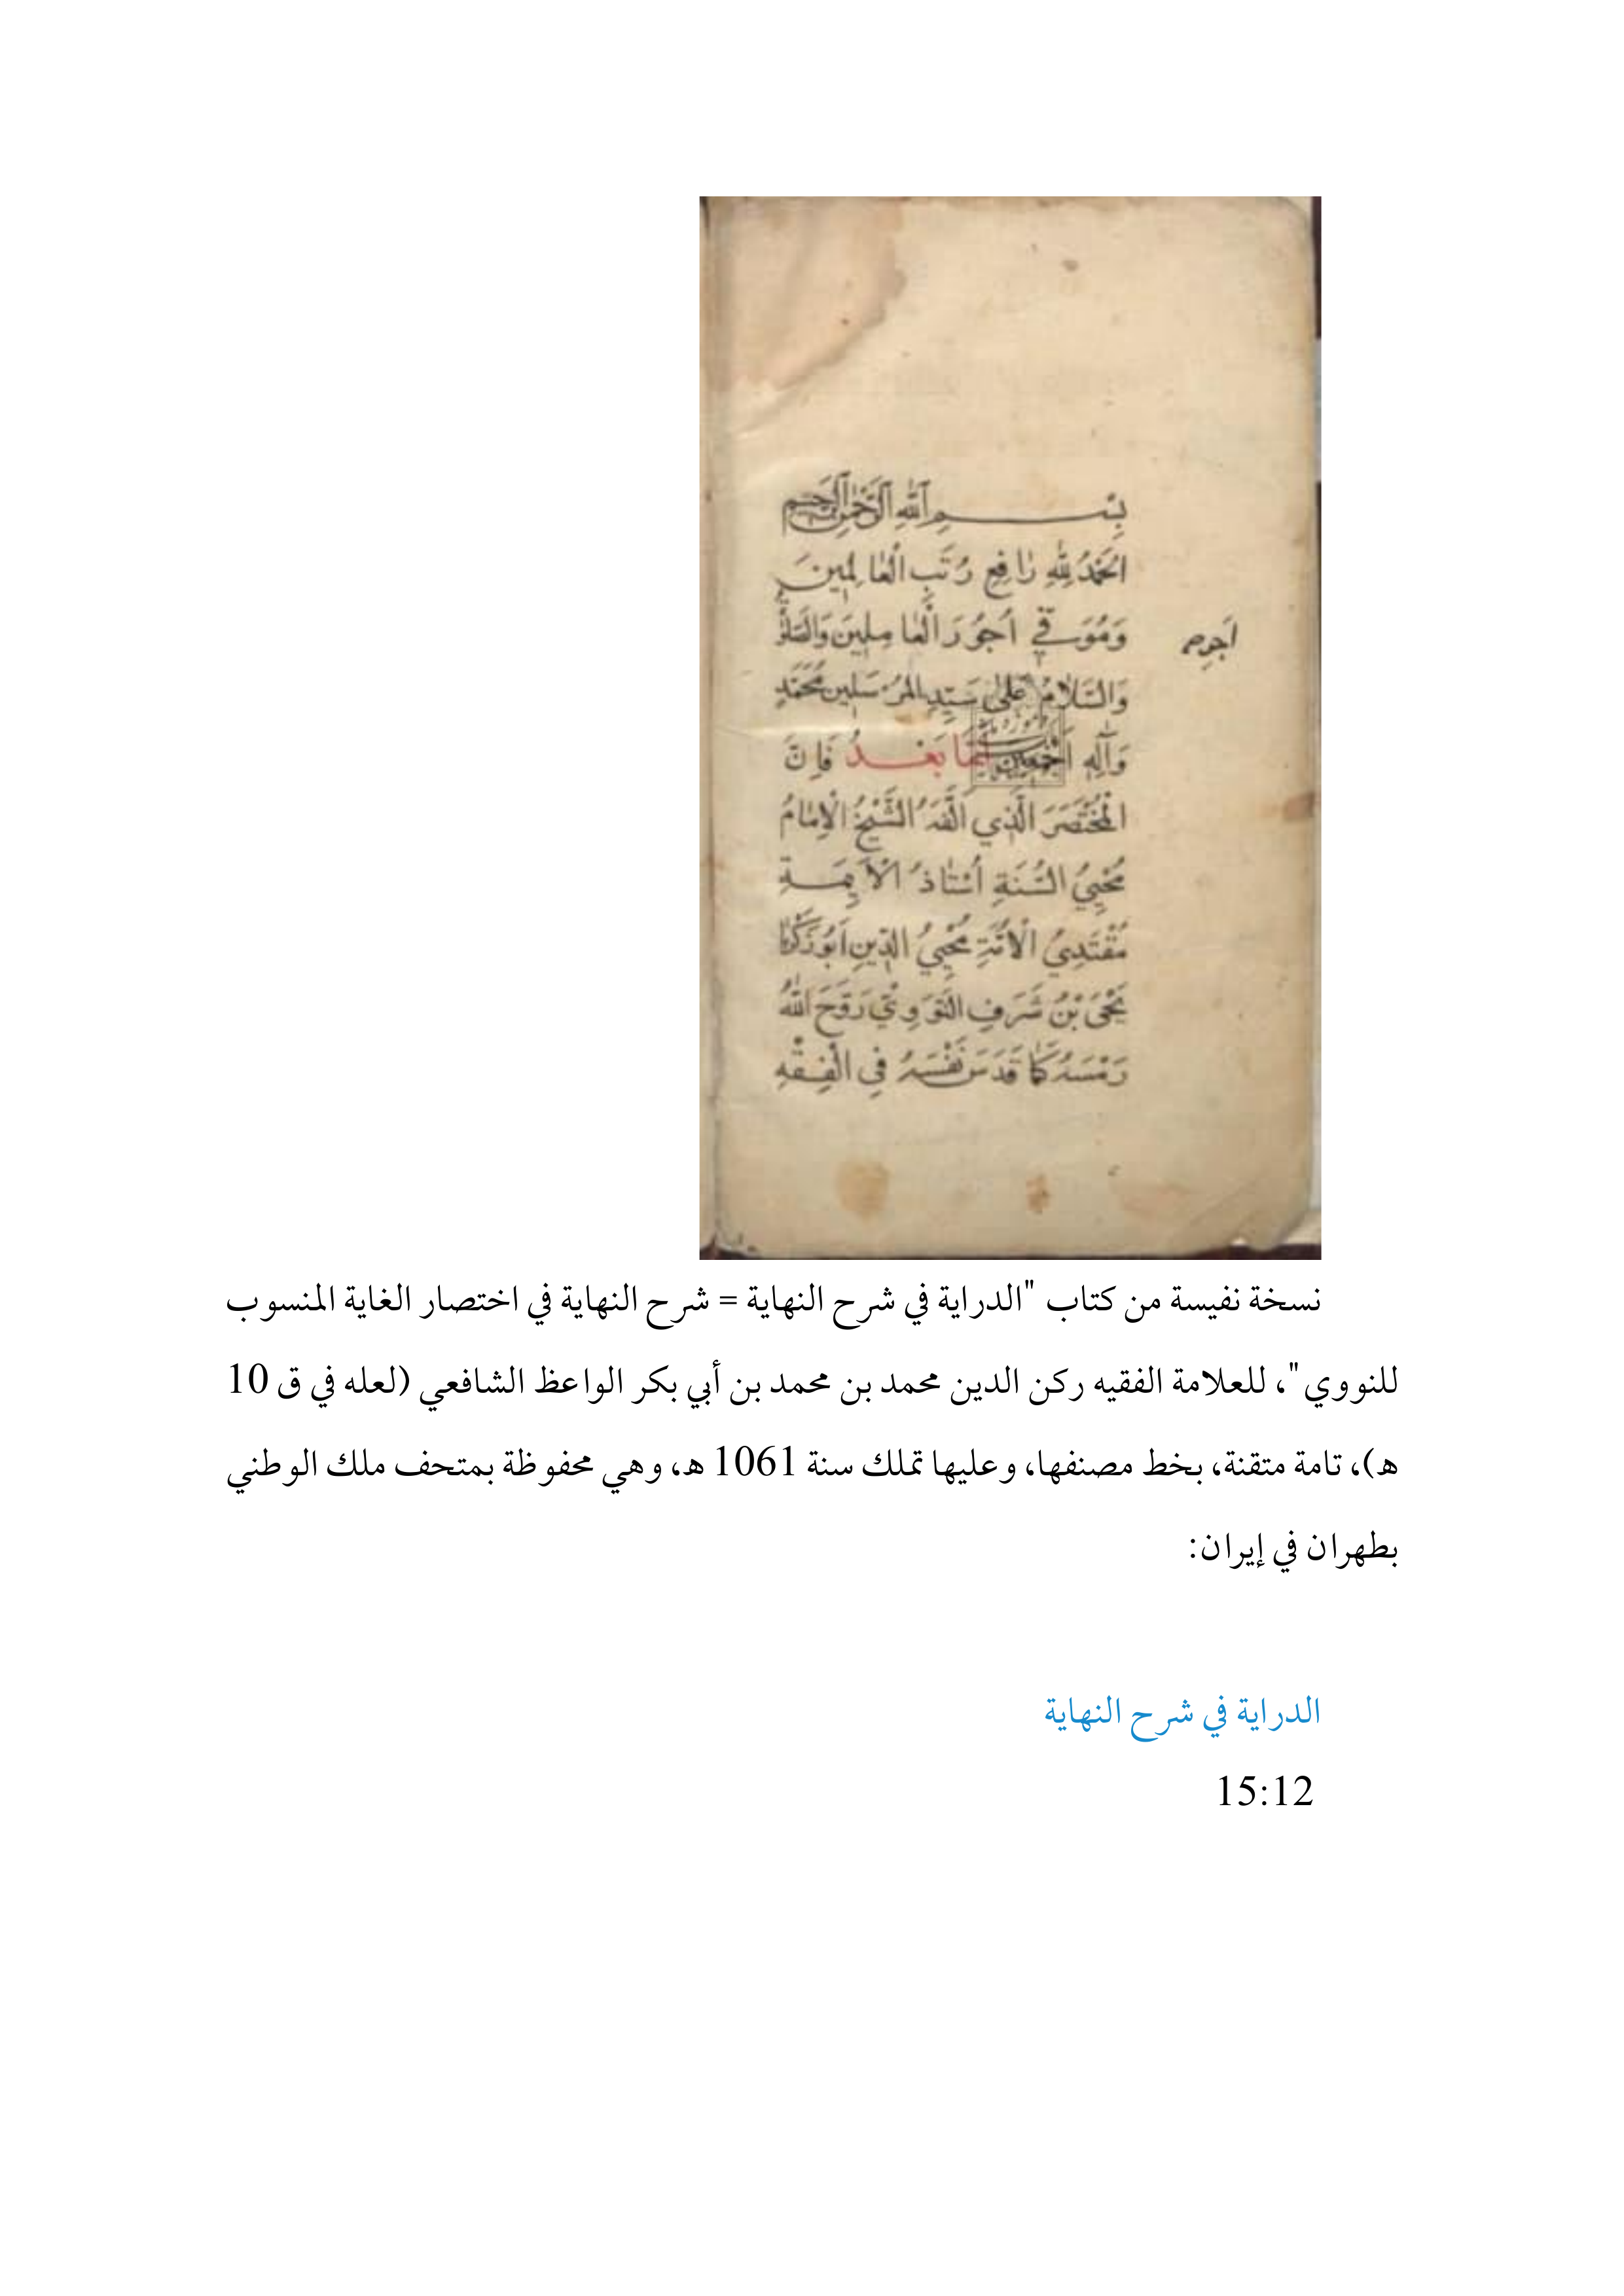 بِسْمِ اللَّهِ الرَّحْمٰنِ الرَّحِيمِ
الحَمْدُ لِلّٰهِ رَافِعِ رُتَبِ الْعَالِمِينَ
وَمُوَفِّي أُجُورَ الْعَامِلِينَ وَالصَّلٰوةُ
وَالسَّلَامُ عَلَى سَيِّدِ الْمُرْسَلِينَ مُحَمَّدٍ
وَآلِهِ أَجْمَعِينَ أَمَّا بَعْدُ فَإِنَّ
الْمُخْتَصَرَ الَّذِي أَلَّفَهُ الشَّيْخُ الْإِمَامُ
مُحْيِيُ السُّنَّةِ أُسْتَاذُ الْأَئِمَّةِ
مُقْتَدِيُ الْأُمَّةِ مُحْيِيُ الدِّينِ أَبُو زَكَرِيَّا
يَحْيَى بْنُ شَرَفِ النَّوَوِيُّ رَوَّحَ اللَّهُ
رَمْسَهُ كَمَا قَدَّسَ نَفْسَهُ فِي الْفِقْهِ
نسخة نفيسة من كتاب "الدراية في شرح النهاية = شرح النهاية في اختصار الغاية المنسوب
للنووي"، للعلامة الفقيه ركن الدين محمد بن محمد بن أبي بكر الواعظ الشافعي (لعله في ق 10
هـ)، تامة متقنة، بخط مصنفها، وعليها تملك سنة 1061 هـ، وهي محفوظة بمتحف ملك الوطني
بطهران في إيران:
الدراية في شرح النهاية
15:12